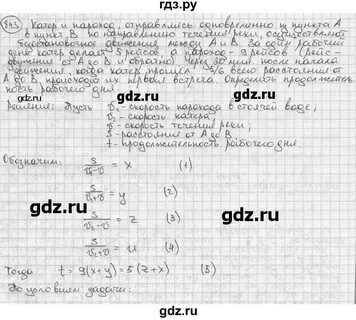 943. Катер и пароход, отправляясь одновременно из пункта А
в пункт В по направлению течения реки, осуществляют
безостановочное движение между А и В. За один рабочий
день катер делает 5 рейсов, а пароход - 9 рейсов (рейс -
движение от А до В и обратно). Через 30 мин. после начала
движения, когда катер прошёл 5/6 всего расстояния от
А до В, происходит первая встреча. Определить продолжитель-
ность рабочего дня.
Решение: Пусть V₁ - скорость парохода в стоячей воде;
V₂ - скорость катера;
V - скорость течения реки;
S - расстояние от А до В;
t - продолжительность рабочего дня.
gdz.ru
gdz.ru
Обозначим:
S/(V₂-V) = x (1)
S/(V₂+V) = y (2)
S/(V₁-V) = z (3)
S/(V₁+V) = u (4)
gdz.ru
gdz.ru
Тогда t = 9(x+y) = 5(z+x) (5)
По условиям задачи:
gdz.ru
gdz.ru